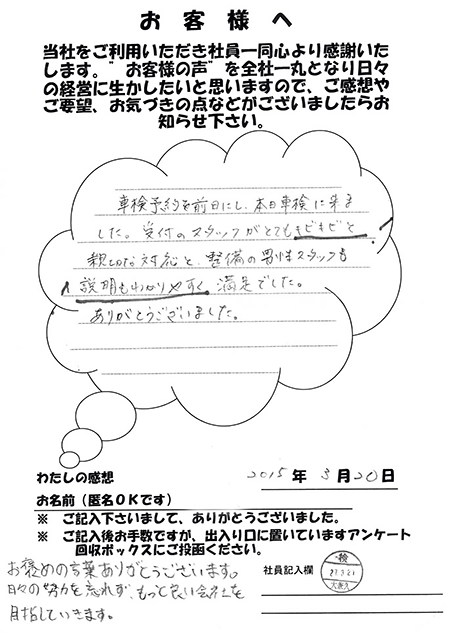 お客様へ
当社をご利用いただき社員一同心より感謝いた
します。"お客様の声"を全社一丸となり日々
の経営に生かしたいと思いますので、ご感想や
ご要望、お気づきの点などがございましたらお
知らせ下さい。
車検予約を前日にし、本日車検に来ま
した。受付のスタッフがとてもキビキビと
親切な対応と、整備の男性スタッフも
説明もわかりやすく、満足でした。
ありがとうございました。
わたしの感想
2015年3月20日
お名前(匿名OKです)
※ ご記入下さいまして、ありがとうございました。
※ ご記入後お手数ですが、出入り口に置いていますアンケート
回収ボックスにご投函ください。
お褒めの言葉ありがとうございます。
日々の努力を忘れず、もっと良い会社を
目指していきます。
社員記入欄
検
27.3.21